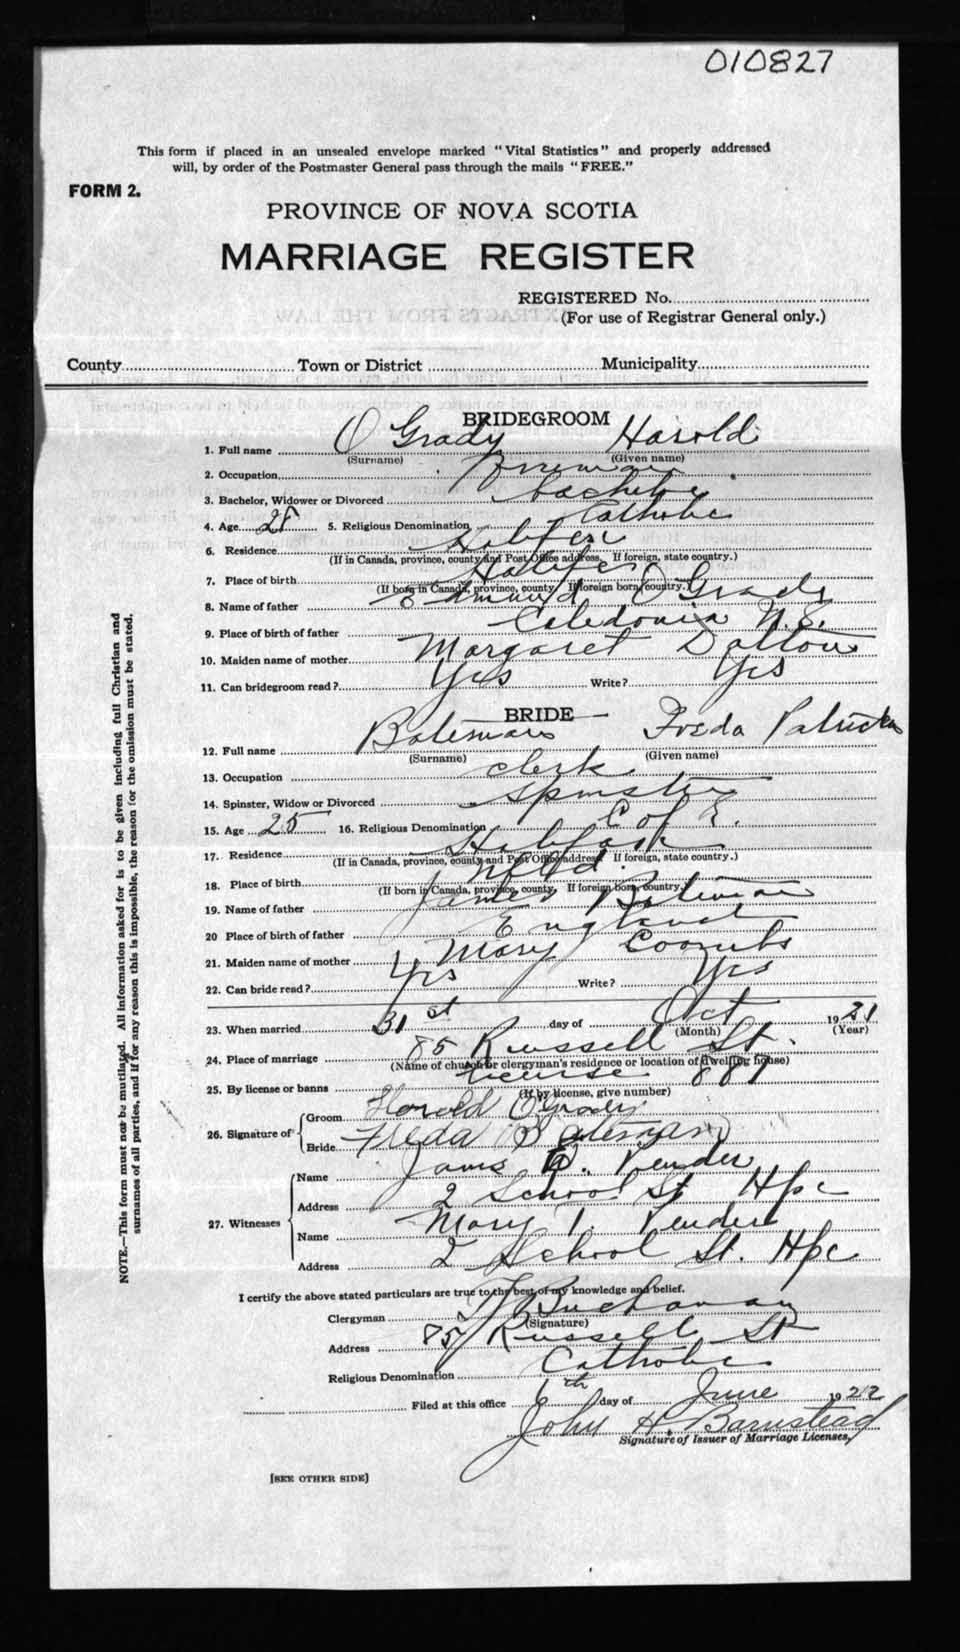 010827
This form if placed in an unsealed envelope marked "Vital Statistics" and properly addressed
will, by order of the Postmaster General pass through the mails "FREE."
FORM 2.
PROVINCE OF NOVA SCOTIA
MARRIAGE REGISTER
REGISTERED No.
(For use of Registrar General only.)
County Town or District Municipality
BRIDEGROOM
1. Full name O Grady Harold
(Surname) (Given name)
2. Occupation
3. Bachelor, Widower or Divorced bachelor
4. Age 28 5. Religious Denomination Catholic
6. Residence Halifax
(If in Canada, province, county and Post Office address. If foreign, state country.)
7. Place of birth Halifax
(If born in Canada, province, county. If foreign born, country.)
8. Name of father Edmund O Grady
9. Place of birth of father Caledonia N.S.
10. Maiden name of mother Margaret Dalton
11. Can bridegroom read? Yes Write? Yes
BRIDE
12. Full name Bateman Freda Patricia
(Surname) (Given name)
13. Occupation clerk
14. Spinster, Widow or Divorced Spinster
15. Age 25 16. Religious Denomination C of E.
17. Residence Halifax
(If in Canada, province, county and Post Office address. If foreign, state country.)
18. Place of birth Nfld.
(If born in Canada, province, county. If foreign born, country.)
19. Name of father James Bateman
20 Place of birth of father England
21. Maiden name of mother Mary Coombs
22. Can bride read? Yes Write? Yes
23. When married 31st day of Oct 1921
(Month) (Year)
24. Place of marriage 85 Russell St.
(Name of church or clergyman's residence or location of dwelling house)
25. By license or banns License 881
(If by license, give number)
26. Signature of Groom Harold O'Grady
Bride Freda Bateman
27. Witnesses Name James Pender
Address 2 School St Hfx
Name Mary Pender
Address 2 School St. Hfx
I certify the above stated particulars are true to the best of my knowledge and belief.
Clergyman Buchanan
(Signature)
Address 85 Russell St
Religious Denomination Catholic
Filed at this office 6th day of June 1922
John H. Barnstead
Signature of Issuer of Marriage Licenses,
[SEE OTHER SIDE]
NOTE.—This form must not be mutilated. All information asked for is to be given including full Christian and
surnames of all parties, and if for any reason this is impossible, the reason for the omission must be stated.